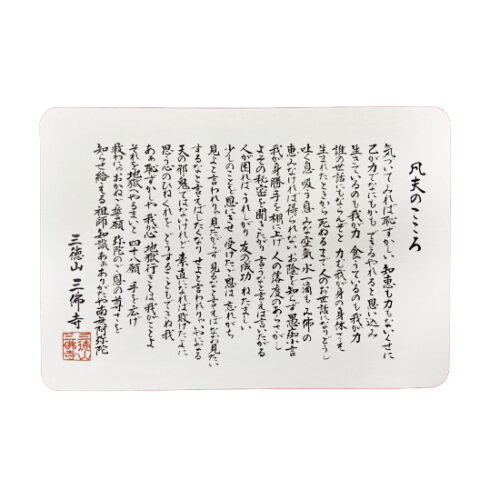 凡夫のこころ
気づいてみれば恥ずかしい 知恵も力もないくせに
己が力でなにもかも できるやれると思い込み
生きているのも我が力 食うているのも我が力
誰の世話にもならんぞと 力む我が身の身体さえ
生まれたときから死ぬるまで 人のお世話になりどうし
吐く息 吸う息 みな空気 水一滴も み佛の
恵みなければ得られない お陰を知らず愚痴小言
我が身勝手を棚に上げ 人の落度のあらさがし
よその秘密を聞きたがり 言うなと言えば言いたがる
人が困れば うれしがり 友の成功 ねたましい
少しのことを恩にきせ 受けたご恩は 忘れがち
見よと言われりゃ 見たがらず 見るなと言えばなお見たい
するなと言えばしたくなり せよと言われりゃ いやになる
天の邪鬼ではないけれど 素直になれば負けたよに
思う心のひねくれを どうすることもできぬ我
ああ恥ずかしや 我が心 地獄行きとは我がことよ
それを地獄へやるまいと 四十八願 手を広げ
救わにゃおかぬご誓願 弥陀のご恩の尊さを
知らせ給える祖師知識 ああありがたや南無阿弥陀
三徳山 三佛寺
三徳山
三佛寺